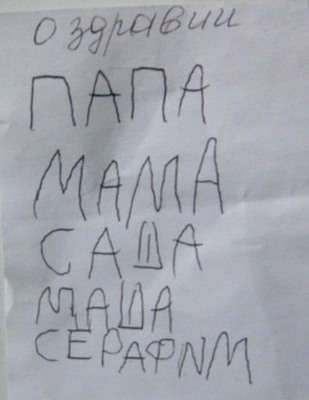 о здравии
ПАПА
МАМА
САША
МАША
СЕРАФИМ